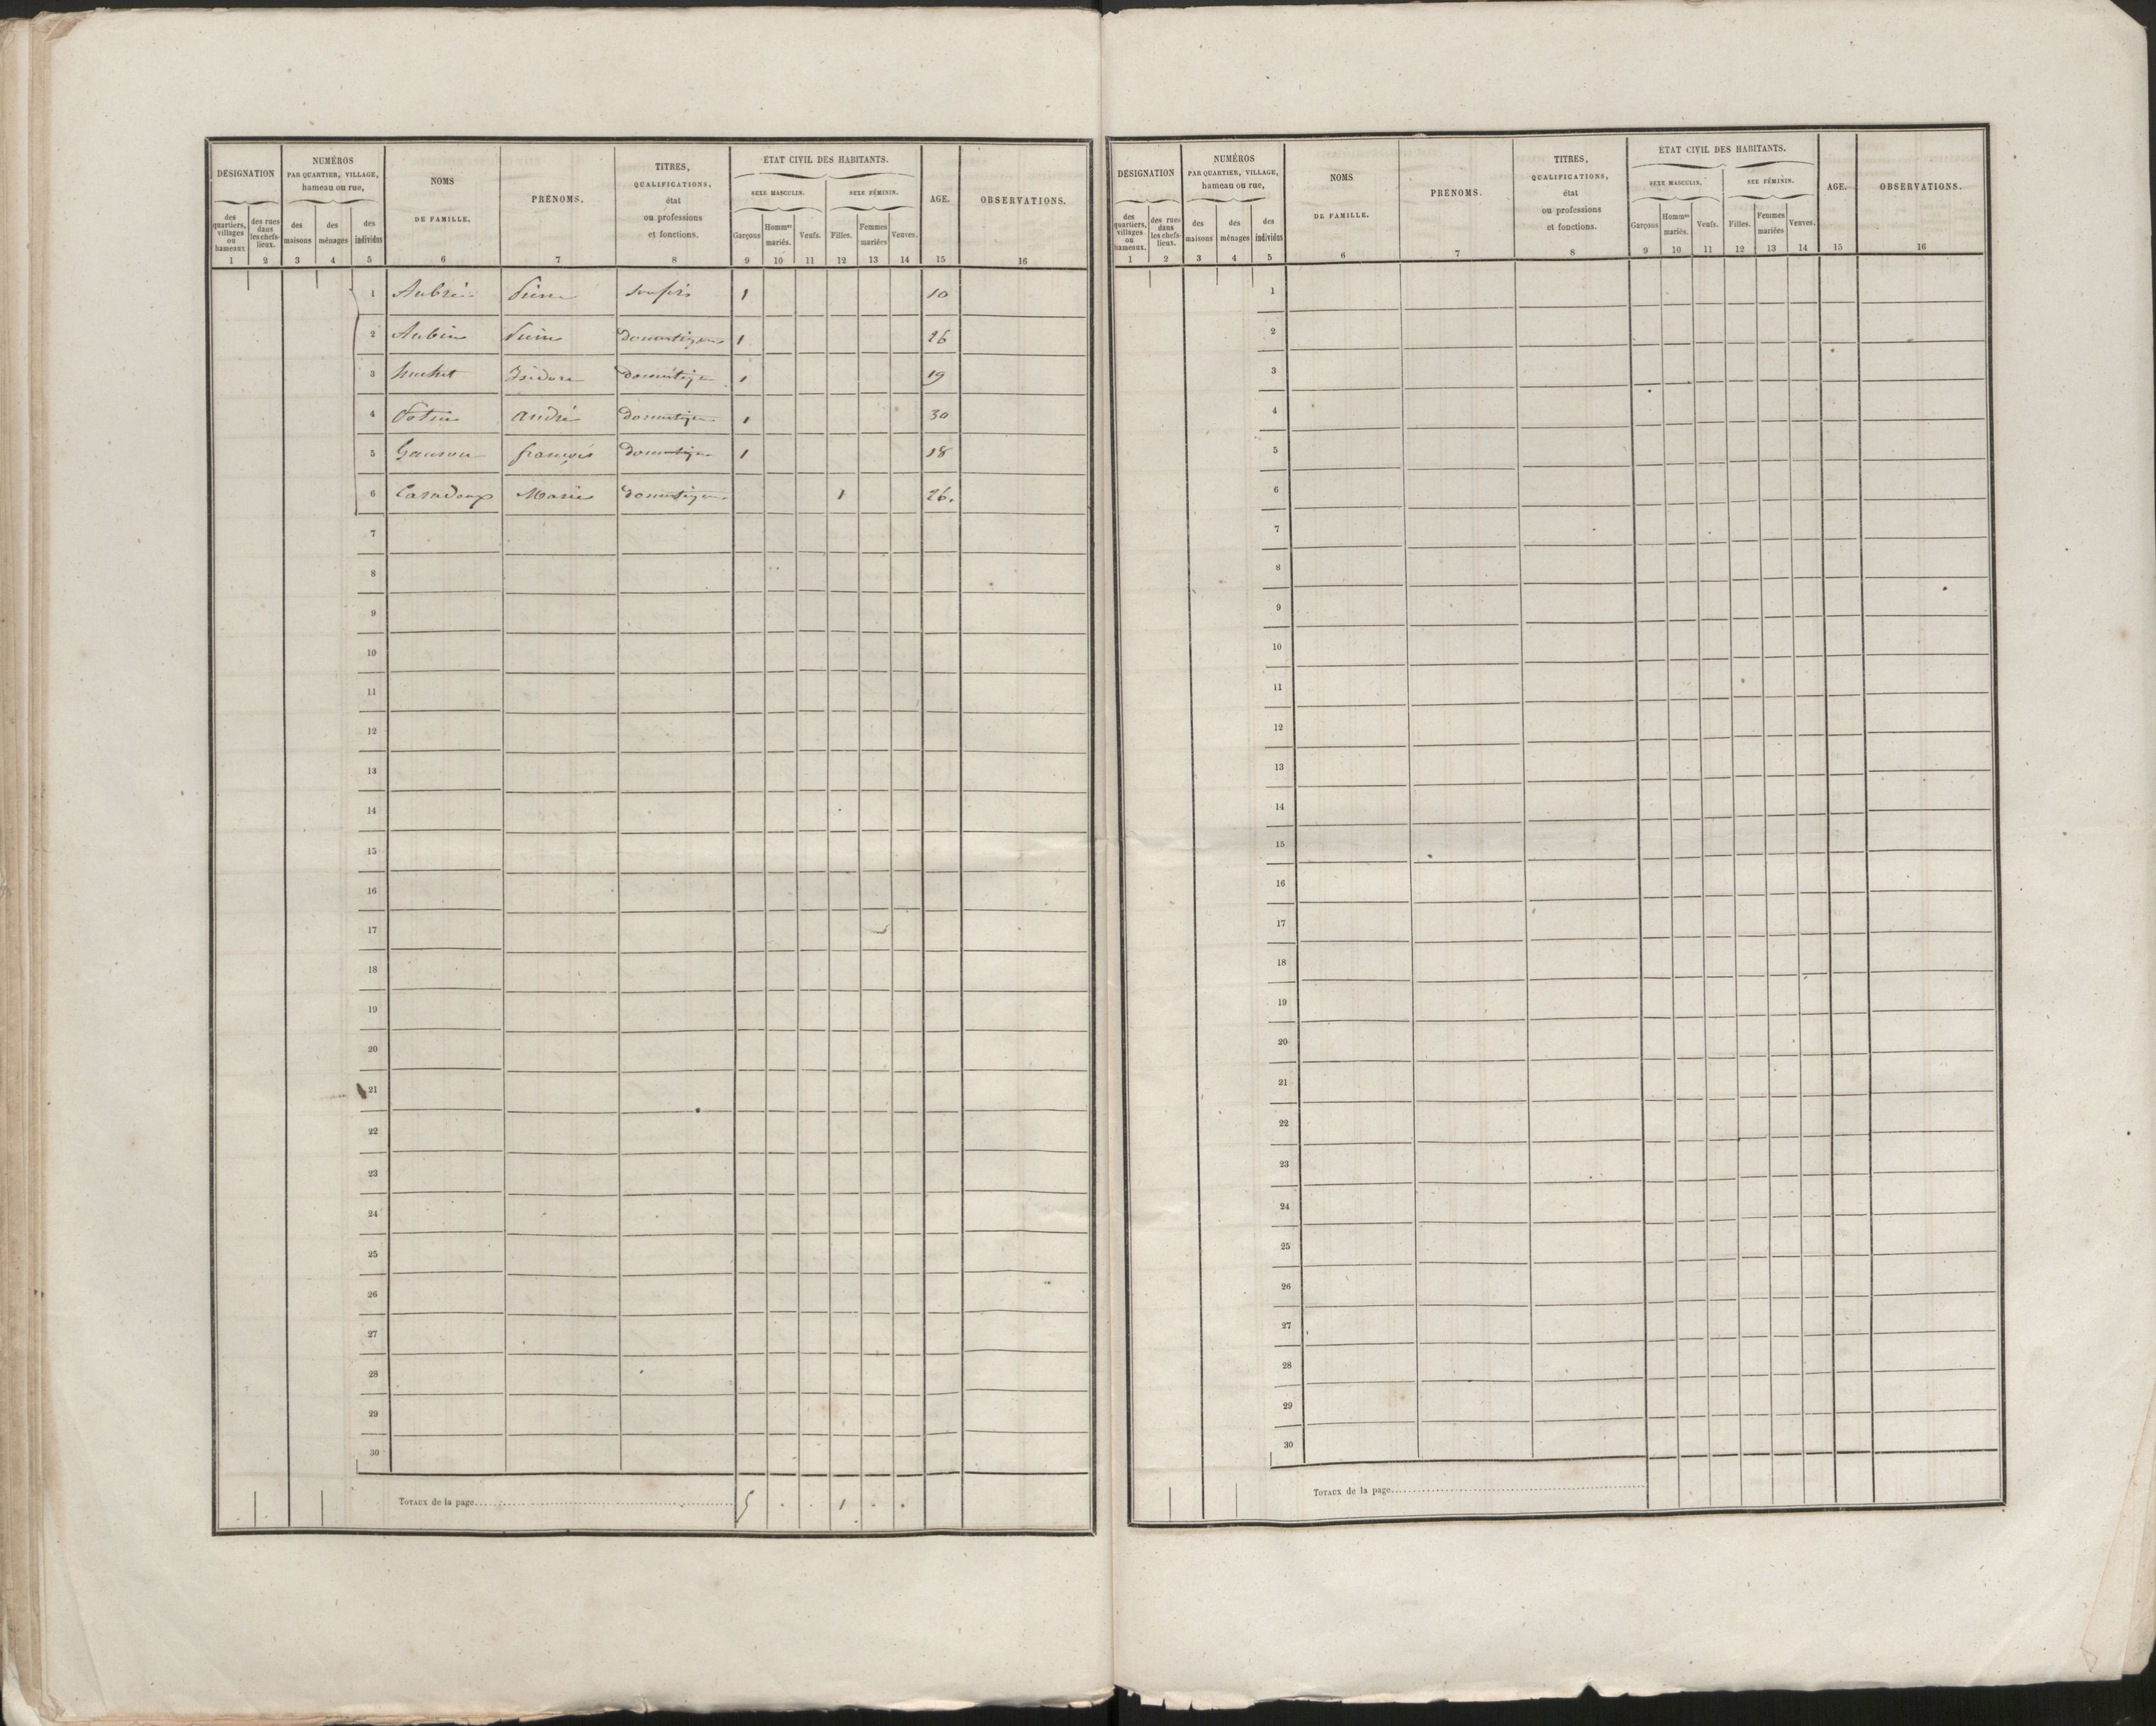 DÉSIGNATION
NUMÉROS
PAR QUARTIER, VILLAGE,
hameau ou rue,
NOMS
DE FAMILLE.
PRÉNOMS.
TITRES,
QUALIFICATIONS,
état
ou professions
et fonctions.
ÉTAT CIVIL DES HABITANTS.
SEXE MASCULIN.
SEXE FÉMININ.
AGE.
OBSERVATIONS.
des quartiers, villages ou hameaux
des rues dans les chefs-lieux.
des maisons
des ménages
des individus
Garçons
Hommes mariés.
Veufs.
Filles.
Femmes mariées
Veuves.
1 2 3 4 5 6 7 8 9 10 11 12 13 14 15 16
1 Pierre son fils 1 10
2 Aubin Pierre domestique 1 26
3 Isidore domestique 1 19
4 Potin André domestique 1 30
5 françois domestique 1 18
6 Marie domestique 1 26.
7
8
9
10
11
12
13
14
15
16
17
18
19
20
21
22
23
24
25
26
27
28
29
30
TOTAUX de la page 5 . . 1 . .
DÉSIGNATION
NUMÉROS
PAR QUARTIER, VILLAGE,
hameau ou rue,
NOMS
DE FAMILLE.
PRÉNOMS.
TITRES,
QUALIFICATIONS,
état
ou professions
et fonctions.
ÉTAT CIVIL DES HABITANTS.
SEXE MASCULIN.
SEXE FÉMININ.
AGE.
OBSERVATIONS.
des quartiers, villages ou hameaux.
des rues dans les chefs-lieux.
des maisons
des ménages
des individus
Garçons
Hommes mariés.
Veufs.
Filles.
Femmes mariées
Veuves.
1 2 3 4 5 6 7 8 9 10 11 12 13 14 15 16
1
2
3
4
5
6
7
8
9
10
11
12
13
14
15
16
17
18
19
20
21
22
23
24
25
26
27
28
29
30
TOTAUX de la page